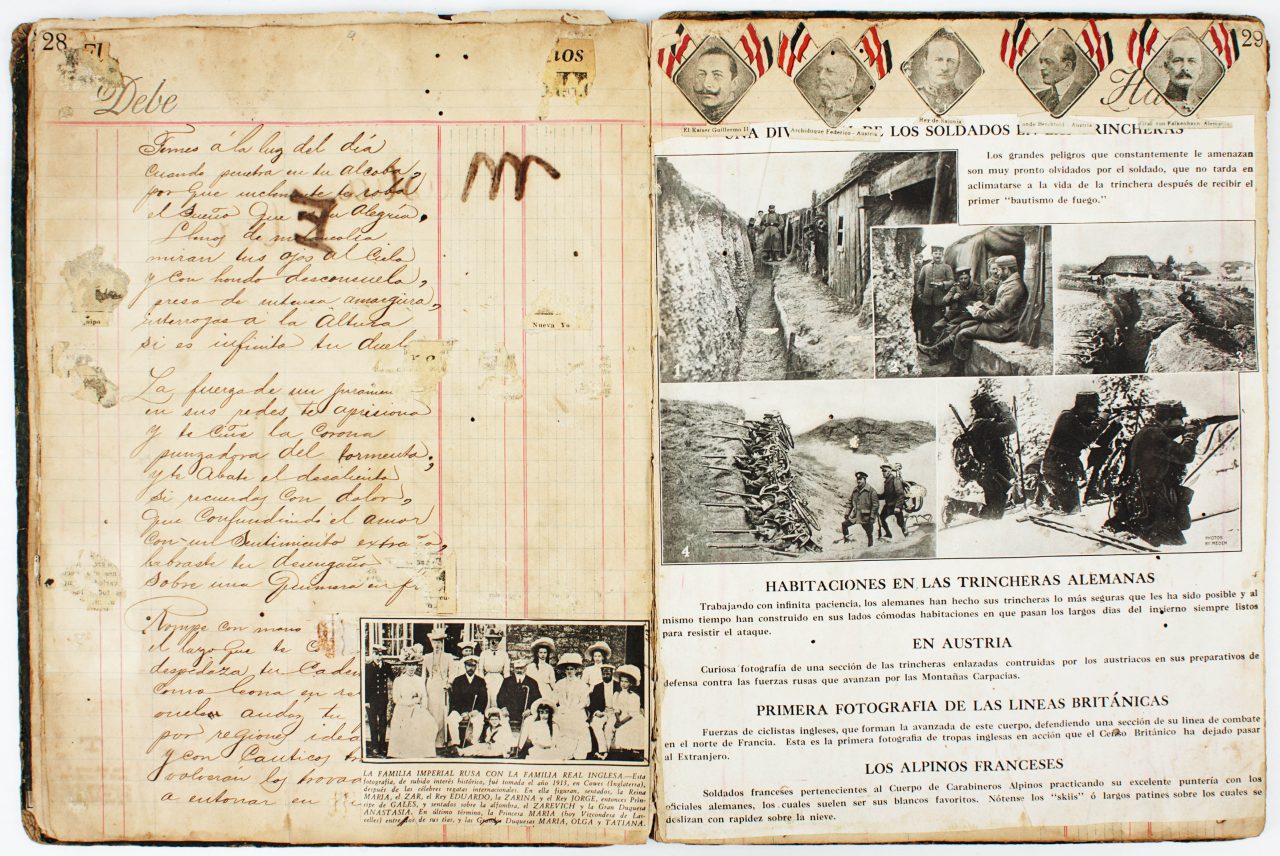 28
Debe
Temes a la luz del día
cuando penetra en tu alcoba,
por que inclemente te roba
el sueño que tu Alegría,
Llenos de melancolía
miran tus ojos al Cielo
y con hondo desconsuelo,
presa de intensa amargura,
interrogas a la Altura
si es infinito tu duel
La fuerza de un
en sus redes te aprisiona
y te ciñe la corona
punzadora del tormento;
y te Abate el desaliento
si recuerdas con dolor,
que confundiendo el amor
con un sentimiento extraño,
labraste tu desengaño
sobre una Quimera en
Rompe con mano
el lazo que te
despedaza tu Caden
como leona en
audaz tu
por regiones idea
y con Cauticos
volveran los trovad
a entonar en
m
E
nos
uipo
Nueva Yo
LA FAMILIA IMPERIAL RUSA CON LA FAMILIA REAL INGLESA.—Esta
fotografía, de subido interés histórico, fué tomada el año 1913, en Cowes (Inglaterra),
después de las célebres regatas internacionales. En ella figuran, sentados, la Reina
MARIA, el ZAR, el Rey EDUARDO, la ZARINA y el Rey JORGE, entonces Prín-
cipe de GALES, y sentados sobre la alfombra, el ZAREVICH y la Gran Duquesa
ANASTASIA. En último término, la Princesa MARIA (hoy Vizcondesa de Las-
celles) entre dos de sus tías, y las Grandes Duquesas MARIA, OLGA y TATIANA.
29
El Kaiser Guillermo II
Archiduque Federico - Austria
Rey de Sajonia
onde Berchtold - Austria
Gral. von Falkenhayn. Alemania
UNA DIV DE LOS SOLDADOS EN LAS TRINCHERAS
Los grandes peligros que constantemente le amenazan
son muy pronto olvidados por el soldado, que no tarda en
aclimatarse a la vida de la trinchera después de recibir el
primer "bautismo de fuego."
1
2
3
4
PHOTOS
BY MEDEM
HABITACIONES EN LAS TRINCHERAS ALEMANAS
Trabajando con infinita paciencia, los alemanes han hecho sus trincheras lo más seguras que les ha sido posible y al
mismo tiempo han construido en sus lados cómodas habitaciones en que pasan los largos dias del invierno siempre listos
para resistir el ataque.
EN AUSTRIA
Curiosa fotografía de una sección de las trincheras enlazadas contruidas por los austriacos en sus preparativos de
defensa contra las fuerzas rusas que avanzan por las Montañas Carpacías.
PRIMERA FOTOGRAFIA DE LAS LINEAS BRITÁNICAS
Fuerzas de ciclistas ingleses, que forman la avanzada de este cuerpo, defendiendo una sección de su linea de combate
en el norte de Francia. Esta es la primera fotografía de tropas inglesas en acción que el Censo Británico ha dejado pasar
al Extranjero.
LOS ALPINOS FRANCESES
Soldados franceses pertenecientes al Cuerpo de Carabineros Alpinos practicando su excelente puntería con los
oficiales alemanes, los cuales suelen ser sus blancos favoritos. Nótense los "skiis" ó largos patines sobre los cuales se
deslizan con rapidez sobre la nieve.